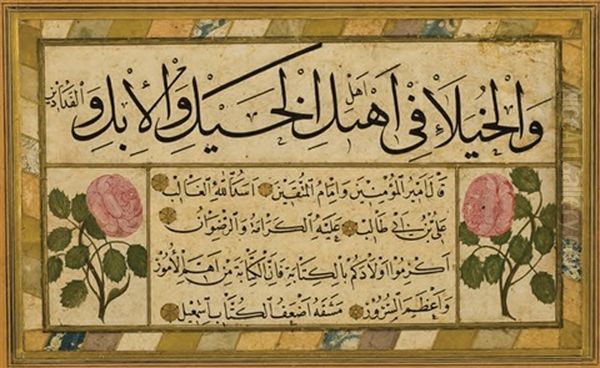 وَالْخُيَلَاءُ فِي اَهْلِ الْخَيْلِ وَالْاِبِلِ وَالْفَدَّادِينَ
اهل
قَالَ اَمِيرُ الْمُؤْمِنِينَ وَاِمَامُ الْمُتَّقِينَ اَسَدُ اللهِ الْغَالِبُ
عَلِيُّ بْنُ اَبِي طَالِبٍ عَلَيْهِ الْكَرَامَةُ وَالرِّضْوَانُ
اَكْرِمُوا اَوْلَادَكُمْ بِالْكِتَابَةِ فَاِنَّ الْكِتَابَةَ مِنْ اَهَمِّ الْاُمُورِ
وَاَعْظَمِ السُّرُورِ مَشَقَهُ اَضْعَفُ الْكُتَّابِ اِسْمٰعِيل